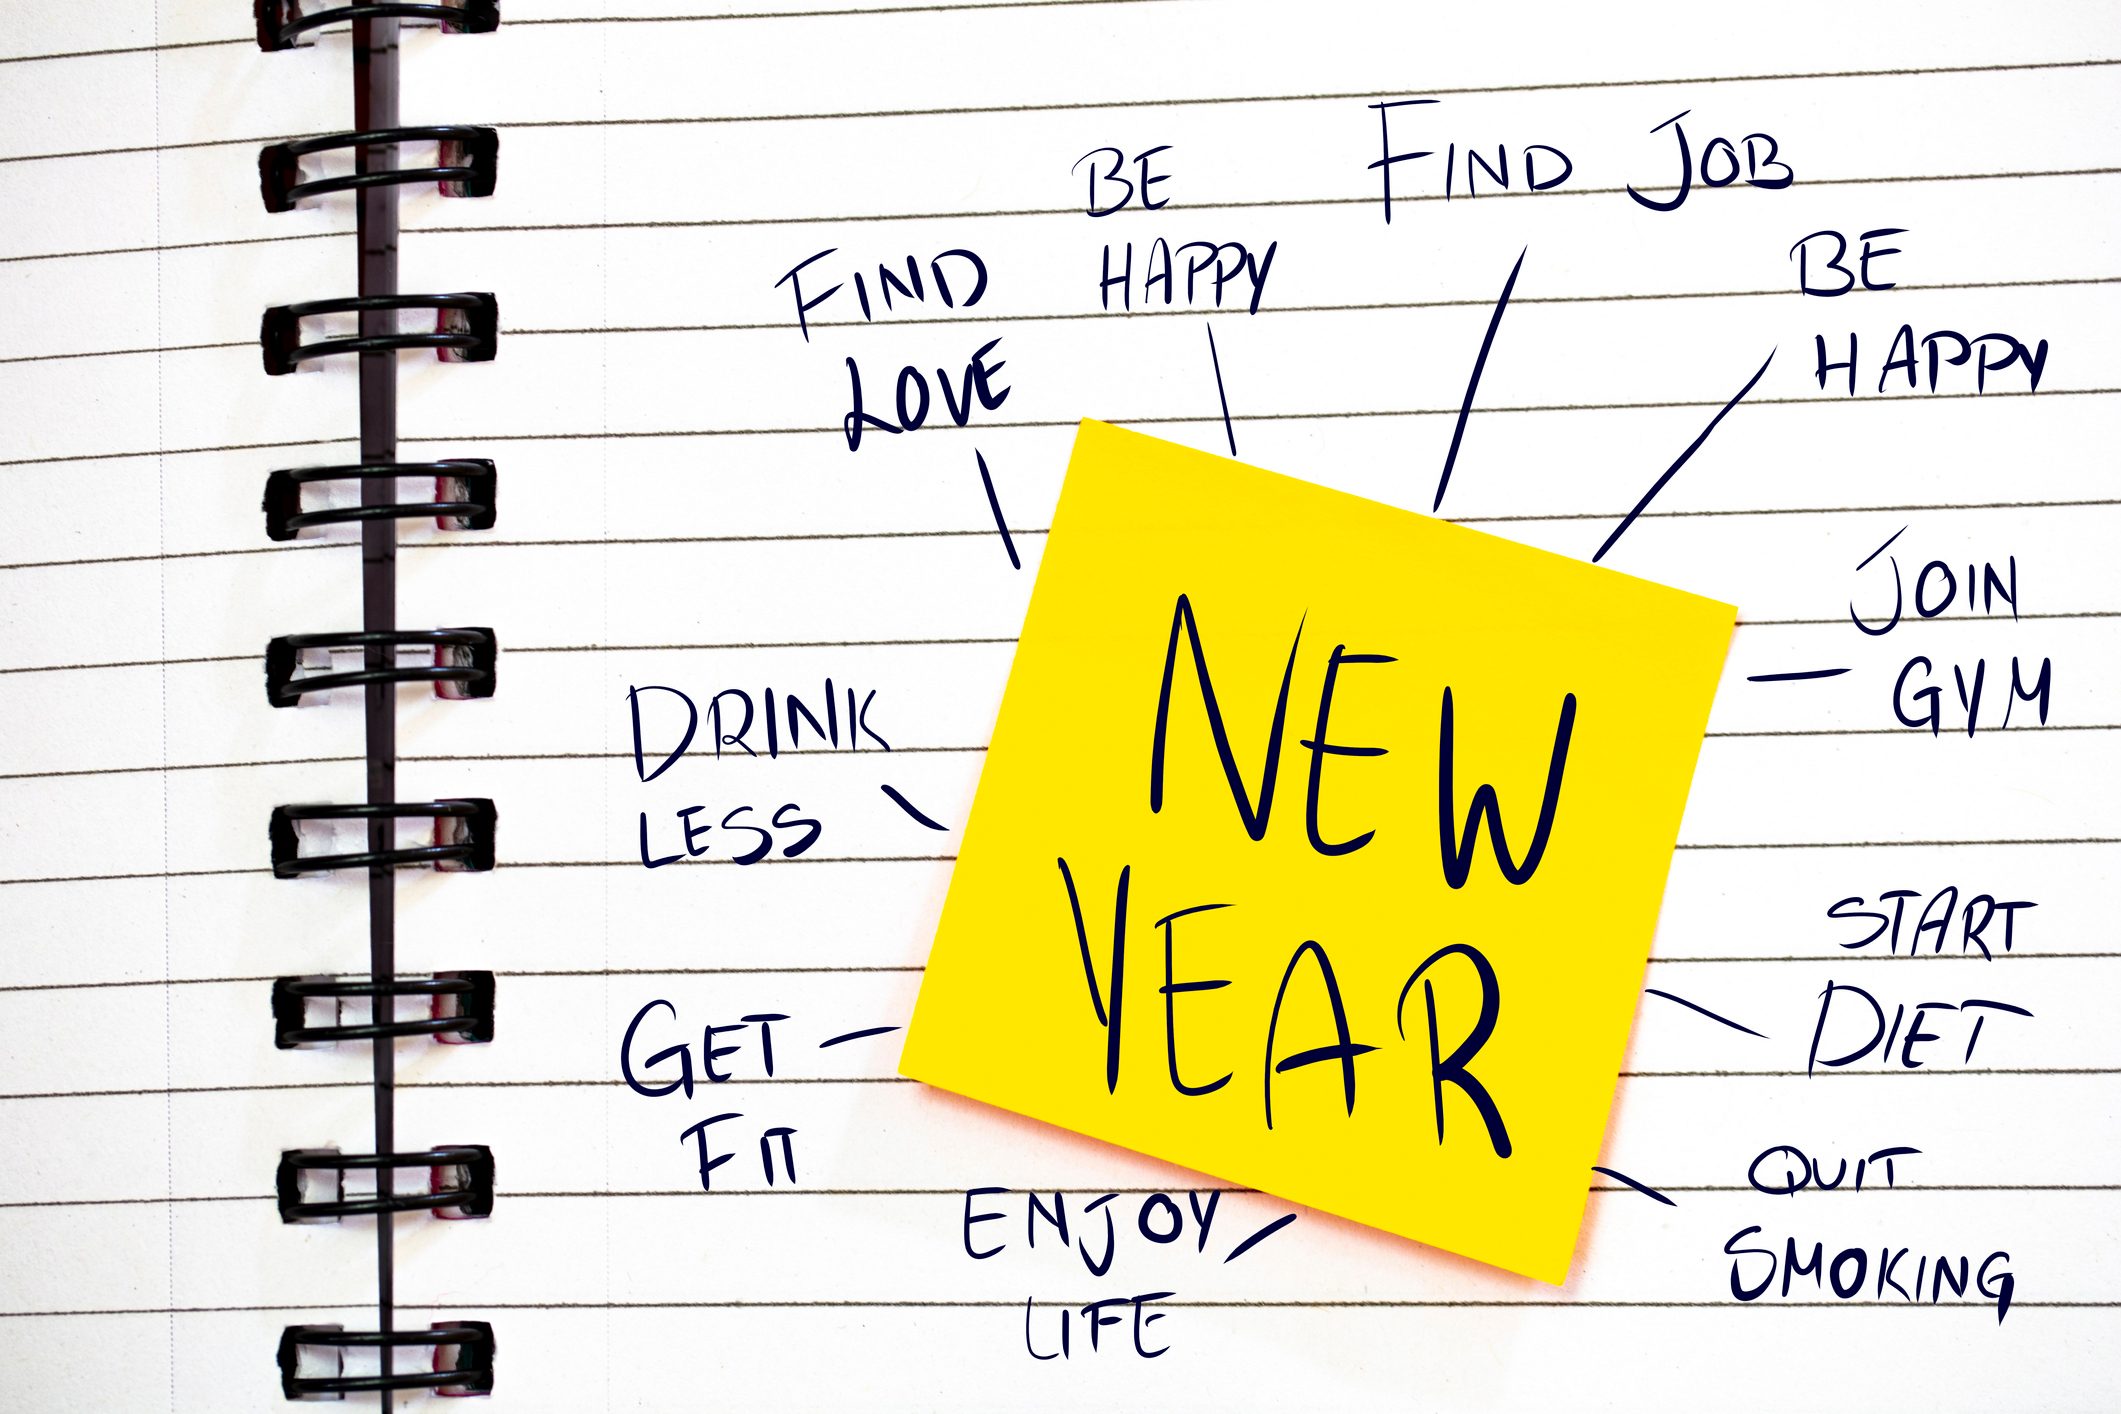 FIND JOB
BE
HAPPY
FIND
LOVE
BE
HAPPY
JOIN
GYM
NEW
YEAR
DRINK
LESS
START
DIET
GET
FIT
QUIT
SMOKING
ENJOY
LIFE